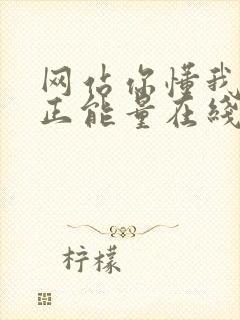 网站你懂我
正能量在线
柠檬